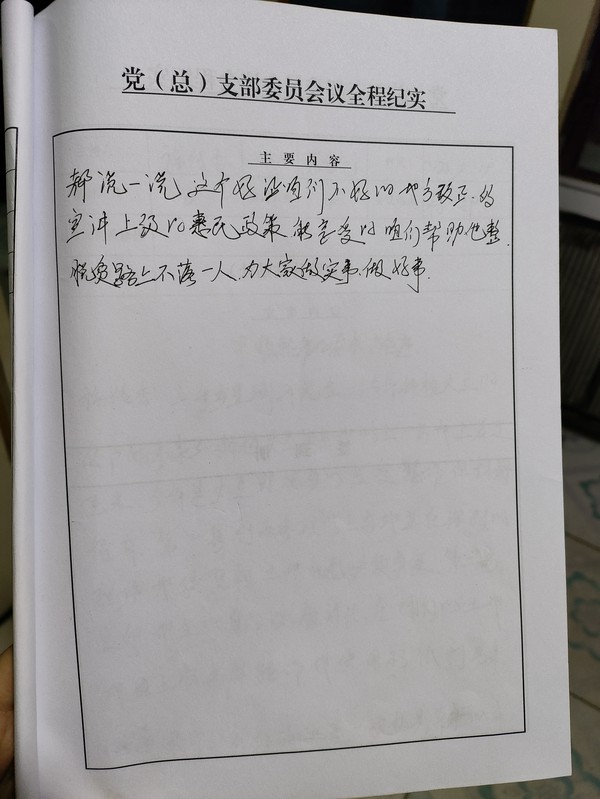 党（总）支部委员会议全程纪实
主要内容
都说一说，这个好，让咱们不好的地方改正.
宣讲上级的惠民政策能享受的咱们帮助他
脱贫路上不落一人.为大家做实事.做好事.